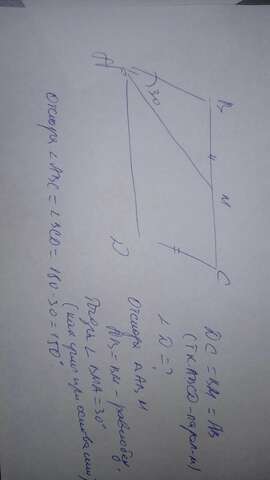 A
B
30
M
C
D
DC = BM = AB
(т.к ABCD - парал-м)
∠D = ?
Отсюда Δ AB M
AB = BM - равнобед.
Тогда ∠ BMA = 30°
(как углы при основании)
Отсюда ∠ABC = ∠BCD = 180 - 30 = 150°